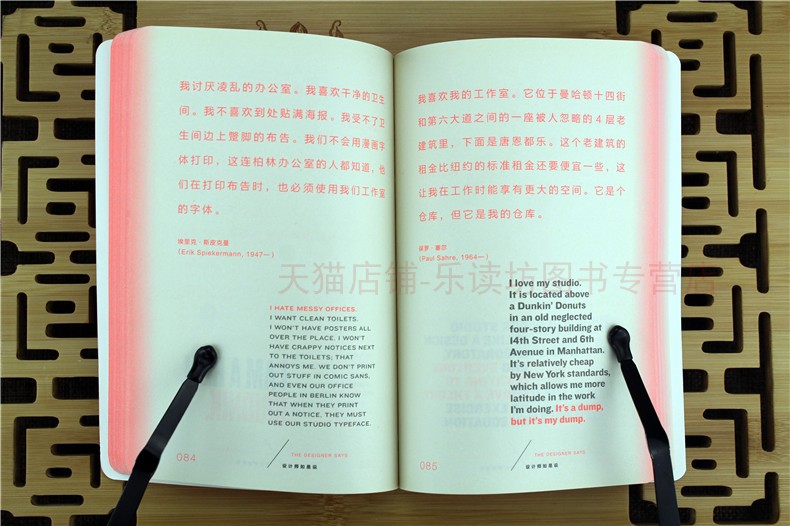 我讨厌凌乱的办公室。我喜欢干净的卫生
间。我不喜欢到处贴满海报。我受不了卫
生间边上蹩脚的布告。我们不会用漫画字
体打印，这连柏林办公室的人都知道，他
们在打印布告时，也必须使用我们工作室
的字体。
埃里克·斯皮克曼
(Erik Spiekermann, 1947—)
I HATE MESSY OFFICES.
I WANT CLEAN TOILETS.
I WON'T HAVE POSTERS ALL
OVER THE PLACE. I WON'T
HAVE CRAPPY NOTICES NEXT
TO THE TOILETS; THAT
ANNOYS ME. WE DON'T PRINT
OUT STUFF IN COMIC SANS,
AND EVEN OUR OFFICE
PEOPLE IN BERLIN KNOW
THAT WHEN THEY PRINT
OUT A NOTICE, THEY MUST
USE OUR STUDIO TYPEFACE.
084
THE DESIGNER SAYS
设计师如是说
我喜欢我的工作室。它位于曼哈顿十四街
和第六大道之间的一座被人忽略的4层老
建筑里，下面是唐恩都乐。这个老建筑的
租金比纽约的标准租金还要便宜一些，这
让我在工作时能享有更大的空间。它是个
仓库，但它是我的仓库。
保罗·塞尔
(Paul Sahre, 1964—)
I love my studio.
It is located above
a Dunkin' Donuts
in an old neglected
four-story building at
14th Street and 6th
Avenue in Manhattan.
It's relatively cheap
by New York standards,
which allows me more
latitude in the work
I'm doing. It's a dump,
but it's my dump.
085
THE DESIGNER SAYS
设计师如是说
天猫店铺-乐读坊图书专营店